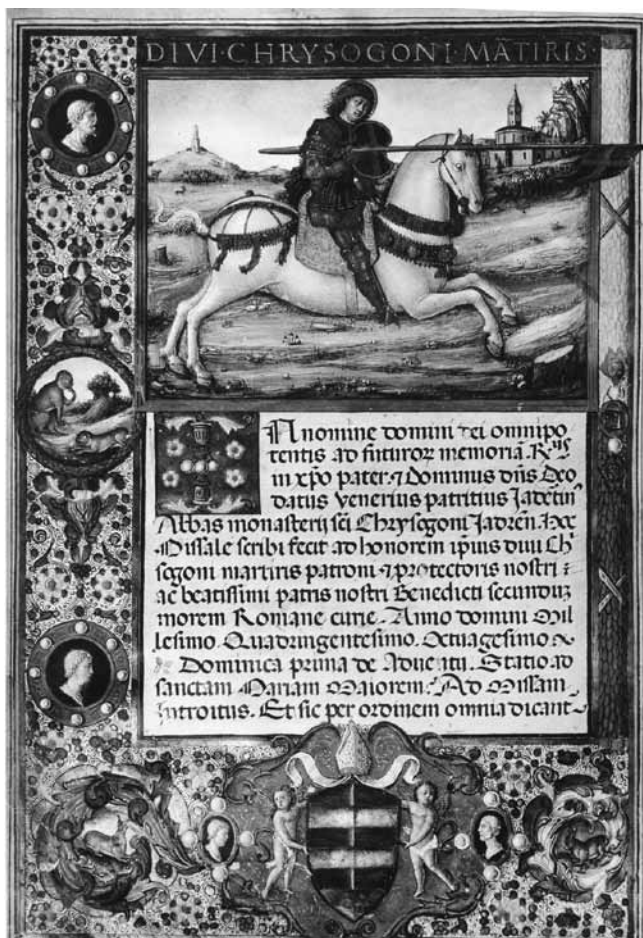 DIVI · CHRYSOGONI · MÃTIRIS ·
In nomine domini dei omnipo
tentis ad futuroꝝ memoriã. R̃ᵘˢ
in xp̃o pater ⁊ dominus dñs Deo
datus Venerius patritius Jadẽtin
Abbas monasterij sc̃i Chrysogoni Jadreñ. Hoc
Missale scribi fecit ad honorem ip̃ius diui Ch
sogoni martiris patroni ⁊ protectoris nostri:
ac beatissimi patris nostri Benedicti secunduz
morem Romane curie. Anno domini Mil
lesimo. Quadringentesimo. Octuagesimo.
Dominica prima de Aduentu. Statio ad
sanctam Mariam Maiorem. Ad Missam
Introitus. Et sic per ordinem omnia dicant